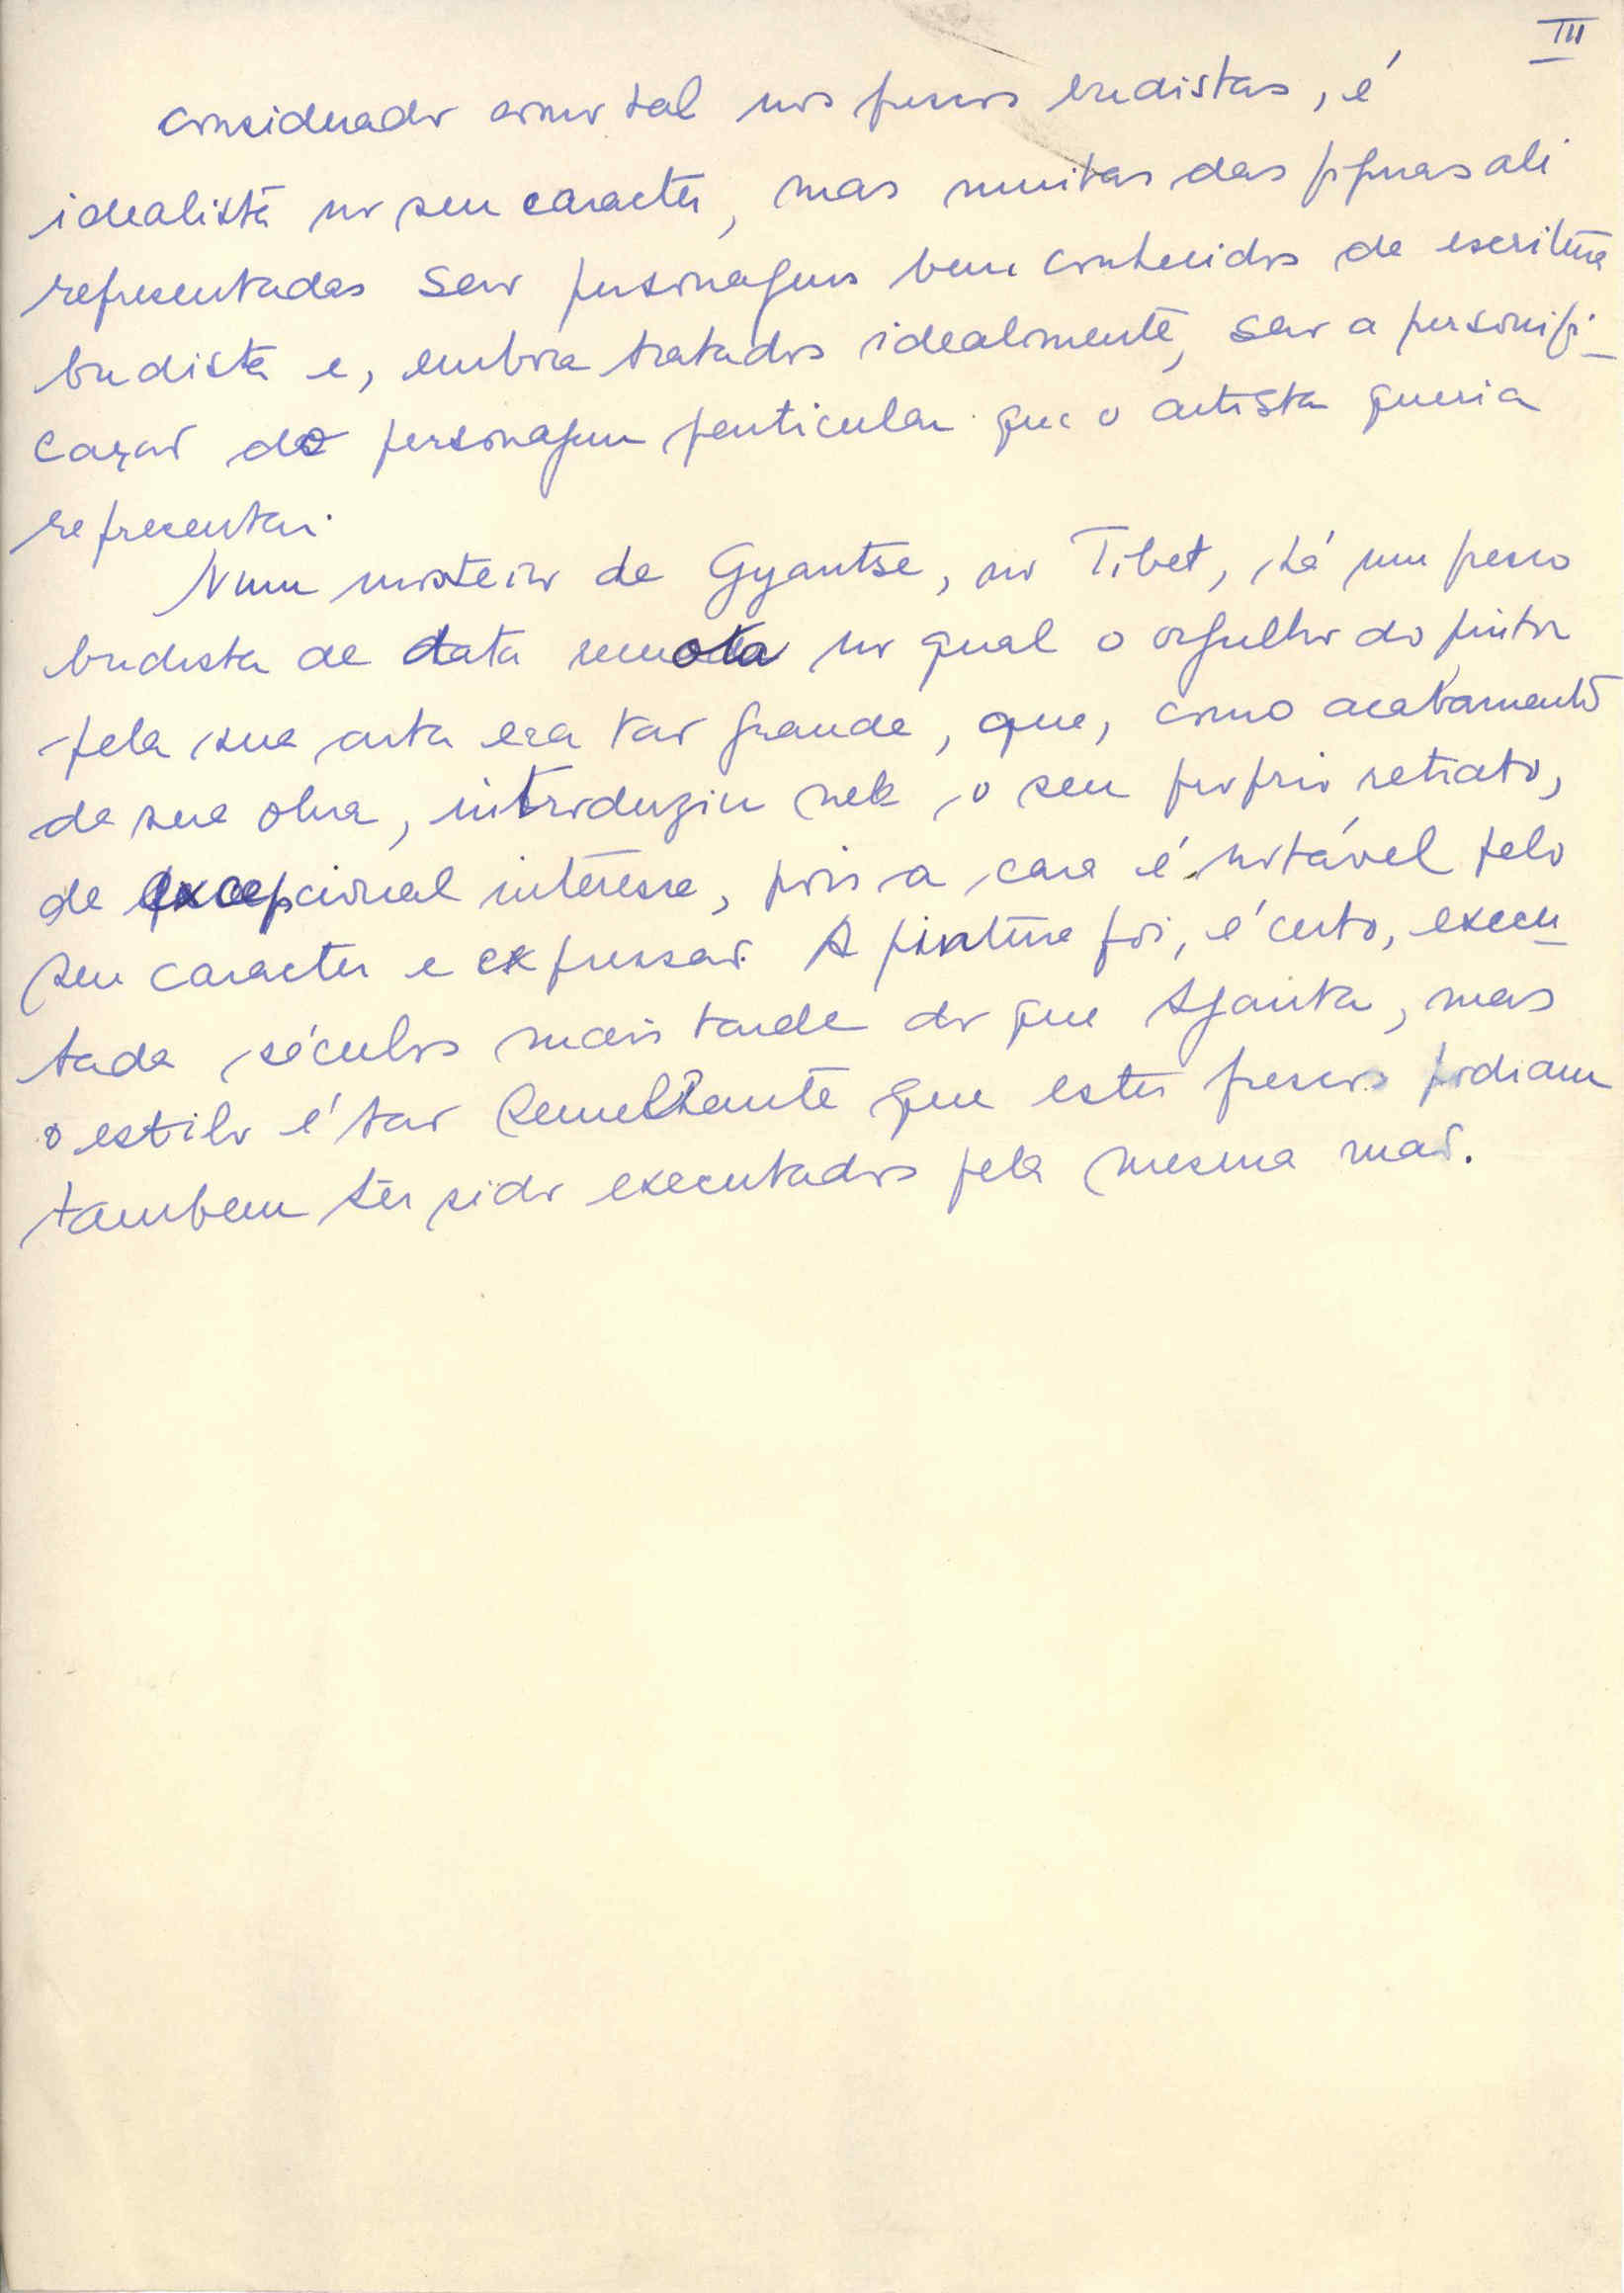 III
considerado como tal nos frescos budistas, é
idealista no seu caracter, mas muitas das figuras ali
representadas são personagens bem conhecidos da escritura
budista e, embora tratados idealmente, são a personifi-
cação do personagem particular que o artista queria
representar.
Num mosteiro de Gyantse, no Tibet, há um fresco
budista de data remota no qual o orgulho do pintor
pela sua arte era tão grande, que, como acabamento
da sua obra, introduziu nele o seu proprio retrato,
de excepcional interesse, pois a cara é notável pelo
seu caracter e expressão. A pintura foi, é certo, execu-
tada séculos mais tarde do que Ajanta, mas
o estilo é tão semelhante que estes frescos podiam
tambem ter sido executados pela mesma mão.